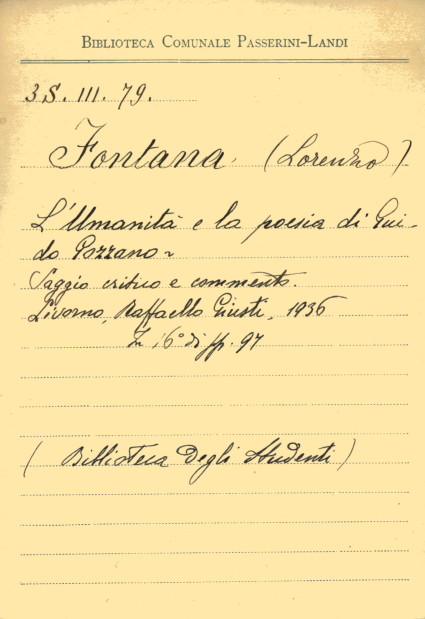 BIBLIOTECA COMUNALE PASSERINI-LANDI
3S. III. 79.
Fontana (Lorenzo)
L'Umanità e la poesia di Gui-
do Gozzano ~
Saggio critico e commento.
Livorno, Raffaello Giusti, 1936
In 16° di pp. 97
(Biblioteca Degli Studenti)